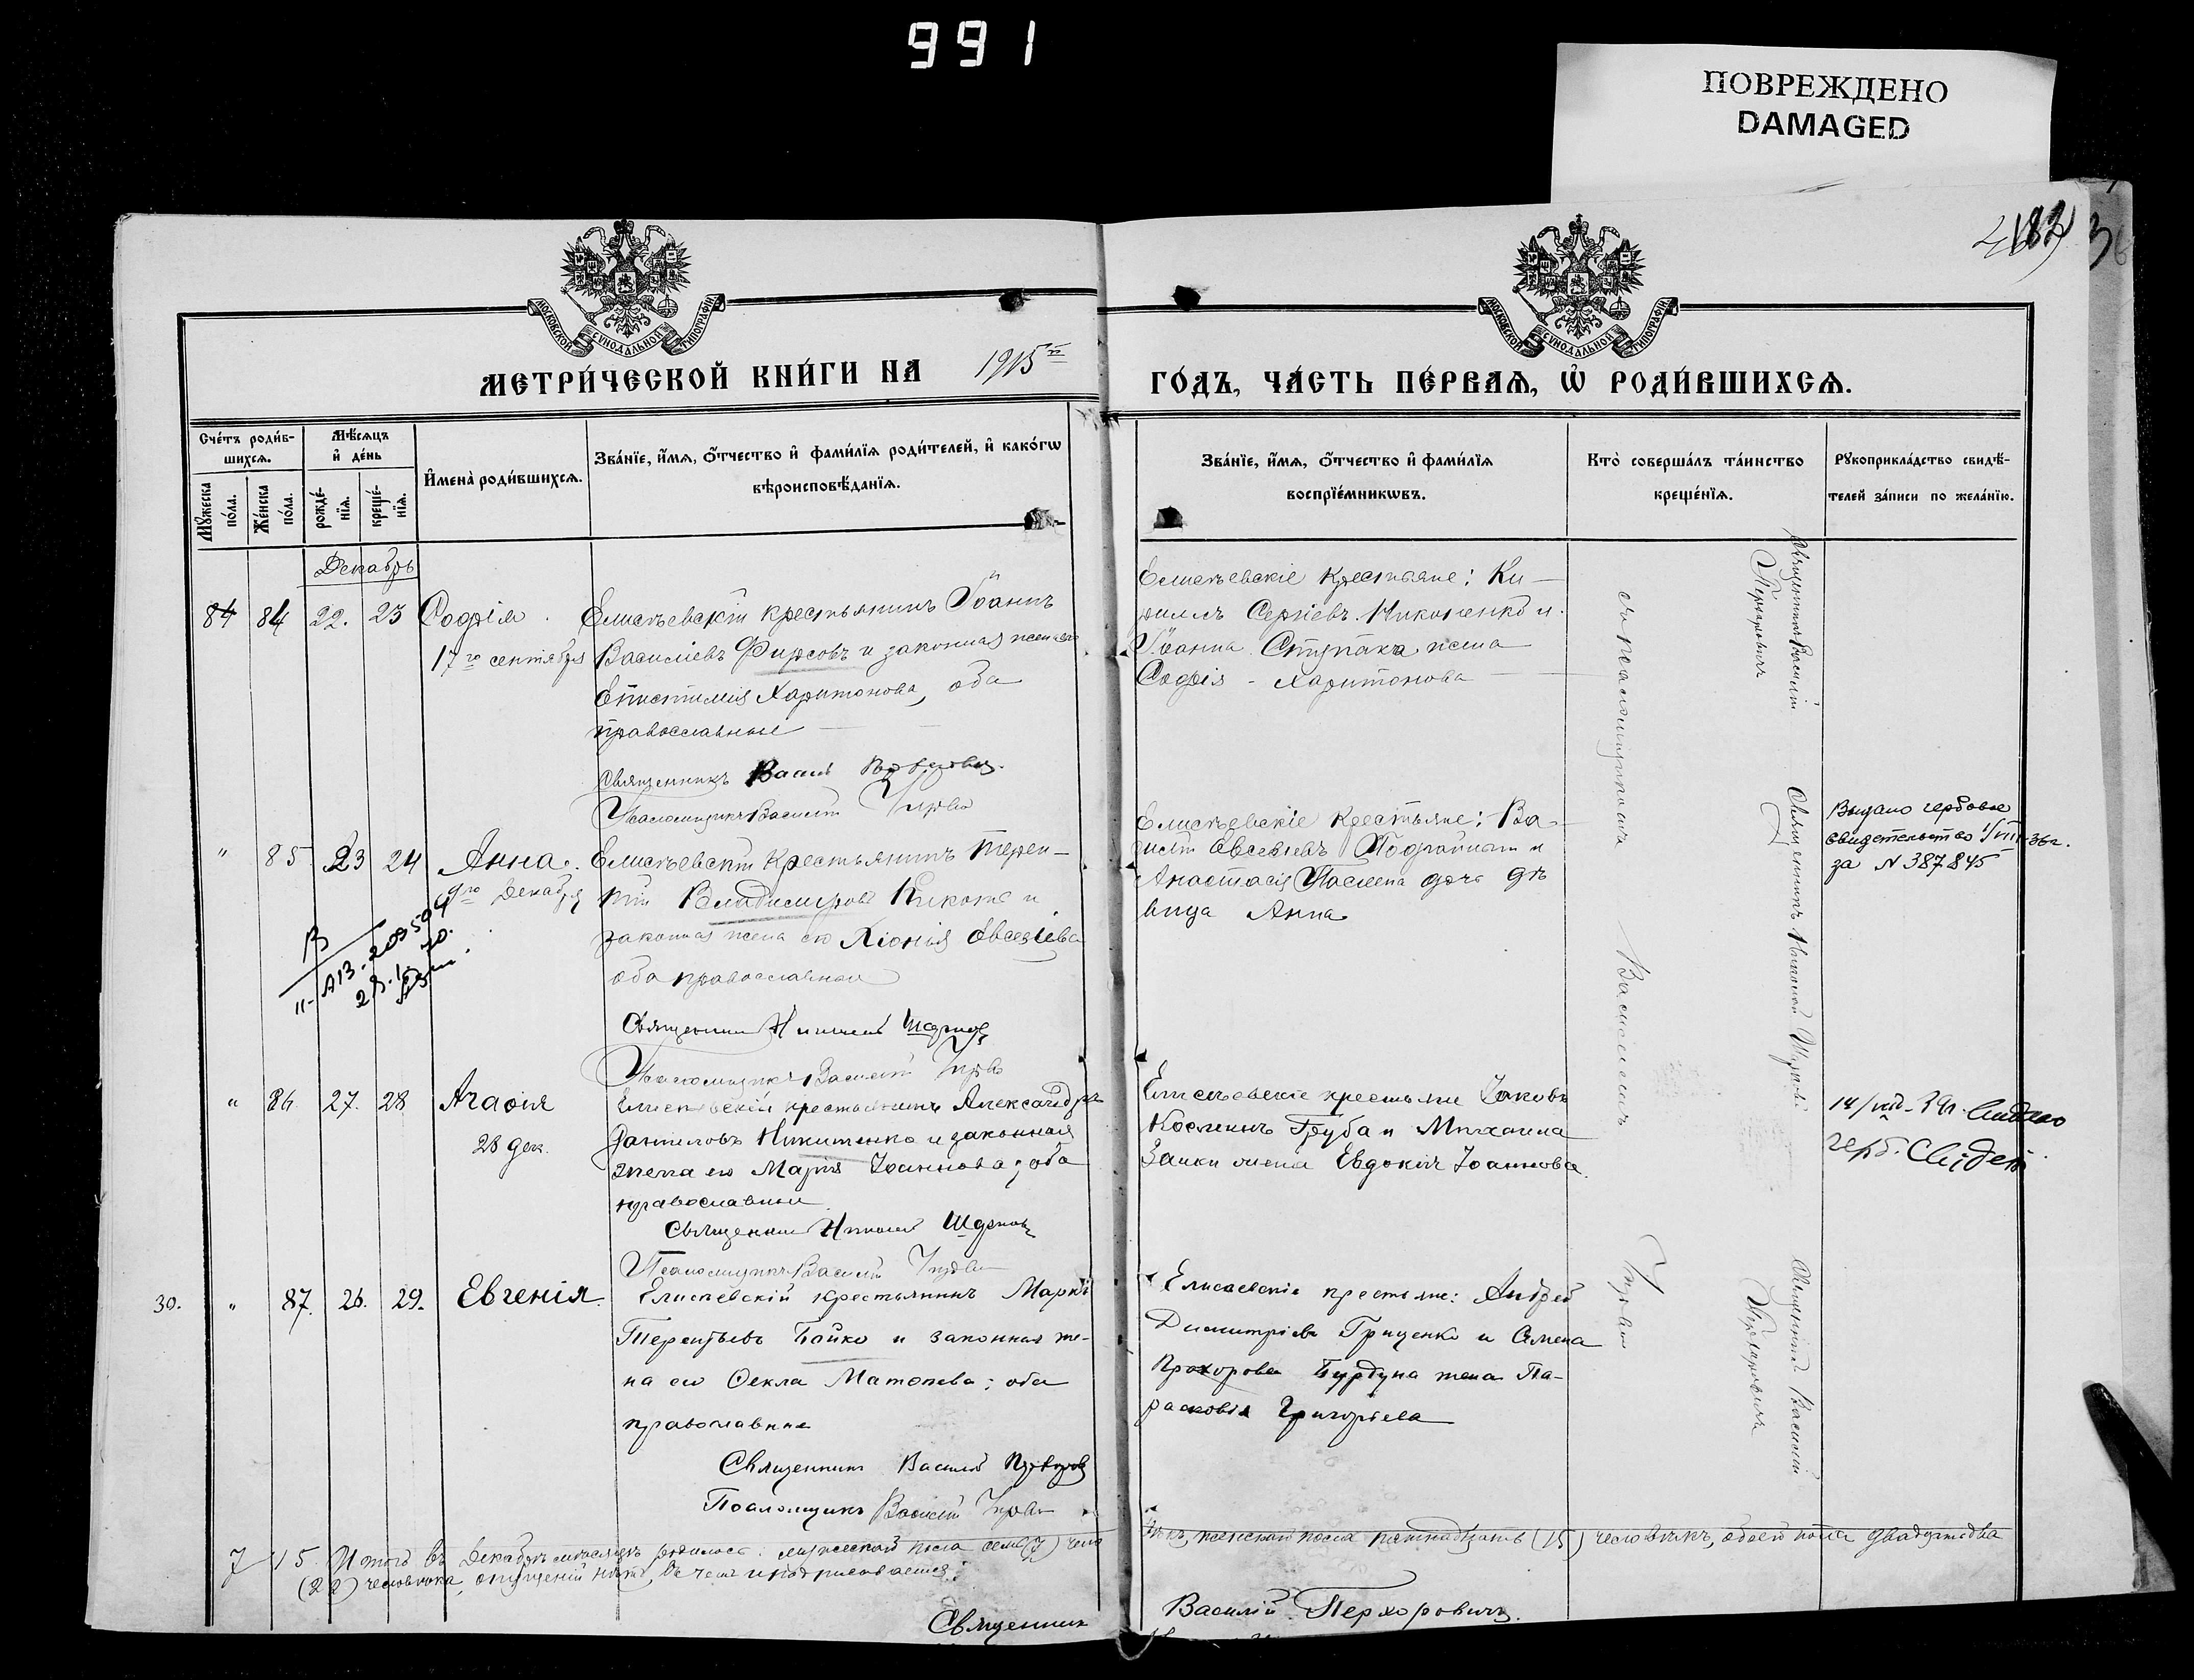 991
ПОВРЕЖДЕНО
DAMAGED
МОСКОВСКОЙ СѴНОДАЛЬНОЙ ТИПОГРАФІИ
МОСКОВСКОЙ СѴНОДАЛЬНОЙ ТИПОГРАФІИ
МЕТРИ́ЧЕСКОЙ КНИ́ГИ НА 1915 ГО́ДЪ, ЧА́СТЬ ПЕ́РВАѦ, Ѡ҆ РОДИ́ВШИХСѦ.
Сче́тъ роди́в-
шихсѧ.
Мѣ́сѧцъ
и҆ де́нь
И҆мена̀ роди́вшихсѧ.
Зва́нїе, и҆́мѧ, ѻ҆́тчество и҆ фами́лїѧ роди́телей, и҆ како́гѡ
вѣроисповѣ́данїѧ.
Мꙋ́жеска
по́ла.
Же́нска
по́ла.
рожде́-
нїѧ.
креще́-
нїѧ.
Зва́нїе, и҆́мѧ, ѻ҆́тчество и҆ фами́лїѧ
воспрїе́мникѡвъ.
Кто̀ соверша́лъ та́инство
креще́нїѧ.
Рꙋкоприкла́дство свидѣ́-
телей за́писи по жела́нїю.
Декабрь
84 84 22. 23 Софія
17го сентября
Елисѣевскій крестьянинъ Іоаннъ
Василіевъ Фирсовъ и законная жена его
Епистимія Харитонова, оба
православные
Священникъ
Псаломщикъ Василій
Елисѣевскіе крестьяне: Ки-
риллъ Сергіевъ Никоненко и
Іоанна Ступака жена
Софія Харитонова
Священникъ Василій
Перхоровичъ
съ псаломщикомъ Василіемъ
" 85 23 24 Анна.
9го Декабря
Елисѣевскій крестьянинъ Терен-
тій Владимировъ и
законная жена его Хіонія Евсевіева
оба православные
Священникъ Николай
Псаломщикъ Василій
Елисѣевскіе крестьяне: Ва-
силій Евсевіевъ и
Анастасія дочь дѣ
вица Анна
Священникъ Николай
Выдано гербовое
свидетельство 1/VIII-36г.
за N 387845
" 86. 27. 28 Агафія
28 дек.
Елисѣевскій крестьянинъ Александръ
Даниловъ Никитенко и законная
жена его Марія Іоаннова; оба
православные
Священникъ Николай
Псаломщикъ Василій
Елисѣевскіе крестьяне Іаковъ
Косминъ Груба и Михаила
Заики жена Евдокія Іоаннова.
герб. Свідет
30. " 87. 26. 29. Евгенія.
Елисѣевскій крестьянинъ Маркъ
Терентьевъ Бойко и законная же-
на его Ѳекла Матѳеева; оба
православные
Священникъ Василій
Псаломщикъ Василій
Елисеевскіе крестьяне: Андрей
Димитріевъ Гриценко и Семена
Прохорова Бурдуна жена Па-
расковія Григоріева
Священникъ Василій
Перхоровичъ
7 15 Итого въ Декабрѣ мѣсяцѣ родилось: мужескаго пола семь (7) чело
вѣкъ, женскаго пола пятнадцать (15) человѣкъ, обоего пола двадцать два
(22) человѣка, опущеній нѣтъ, въ чемъ и подписываемся:
Священникъ Василій Перхоровичъ.